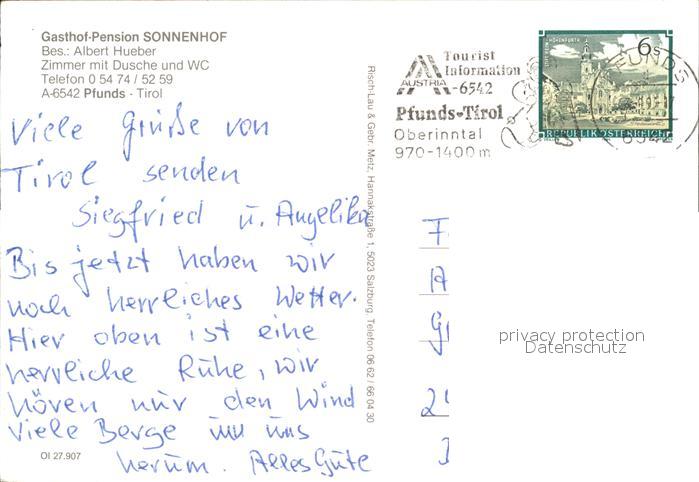 Gasthof-Pension SONNENHOF
Bes.: Albert Hueber
Zimmer mit Dusche und WC
Telefon 0 54 74 / 52 59
A-6542 Pfunds - Tirol
Viele Grüße von
Tirol senden
Siegfried u. Angelika
Bis jetzt haben wir
noch herrliches Wetter.
Hier oben ist eine
herrliche Ruhe, wir
hören nur den Wind
viele Berge um uns
herum. Alles Gute
OI 27.907
Risch-Lau & Gebr. Metz, Hannakstraße 1, 5023 Salzburg, Telefon 06 62 / 66 04 30
Tourist
Information
AUSTRIA -6542
Pfunds-Tirol
Oberinntal
970-1400 m
6s
REPUBLIK ÖSTERREICH
PFUNDS
6542
privacy protection
Datenschutz